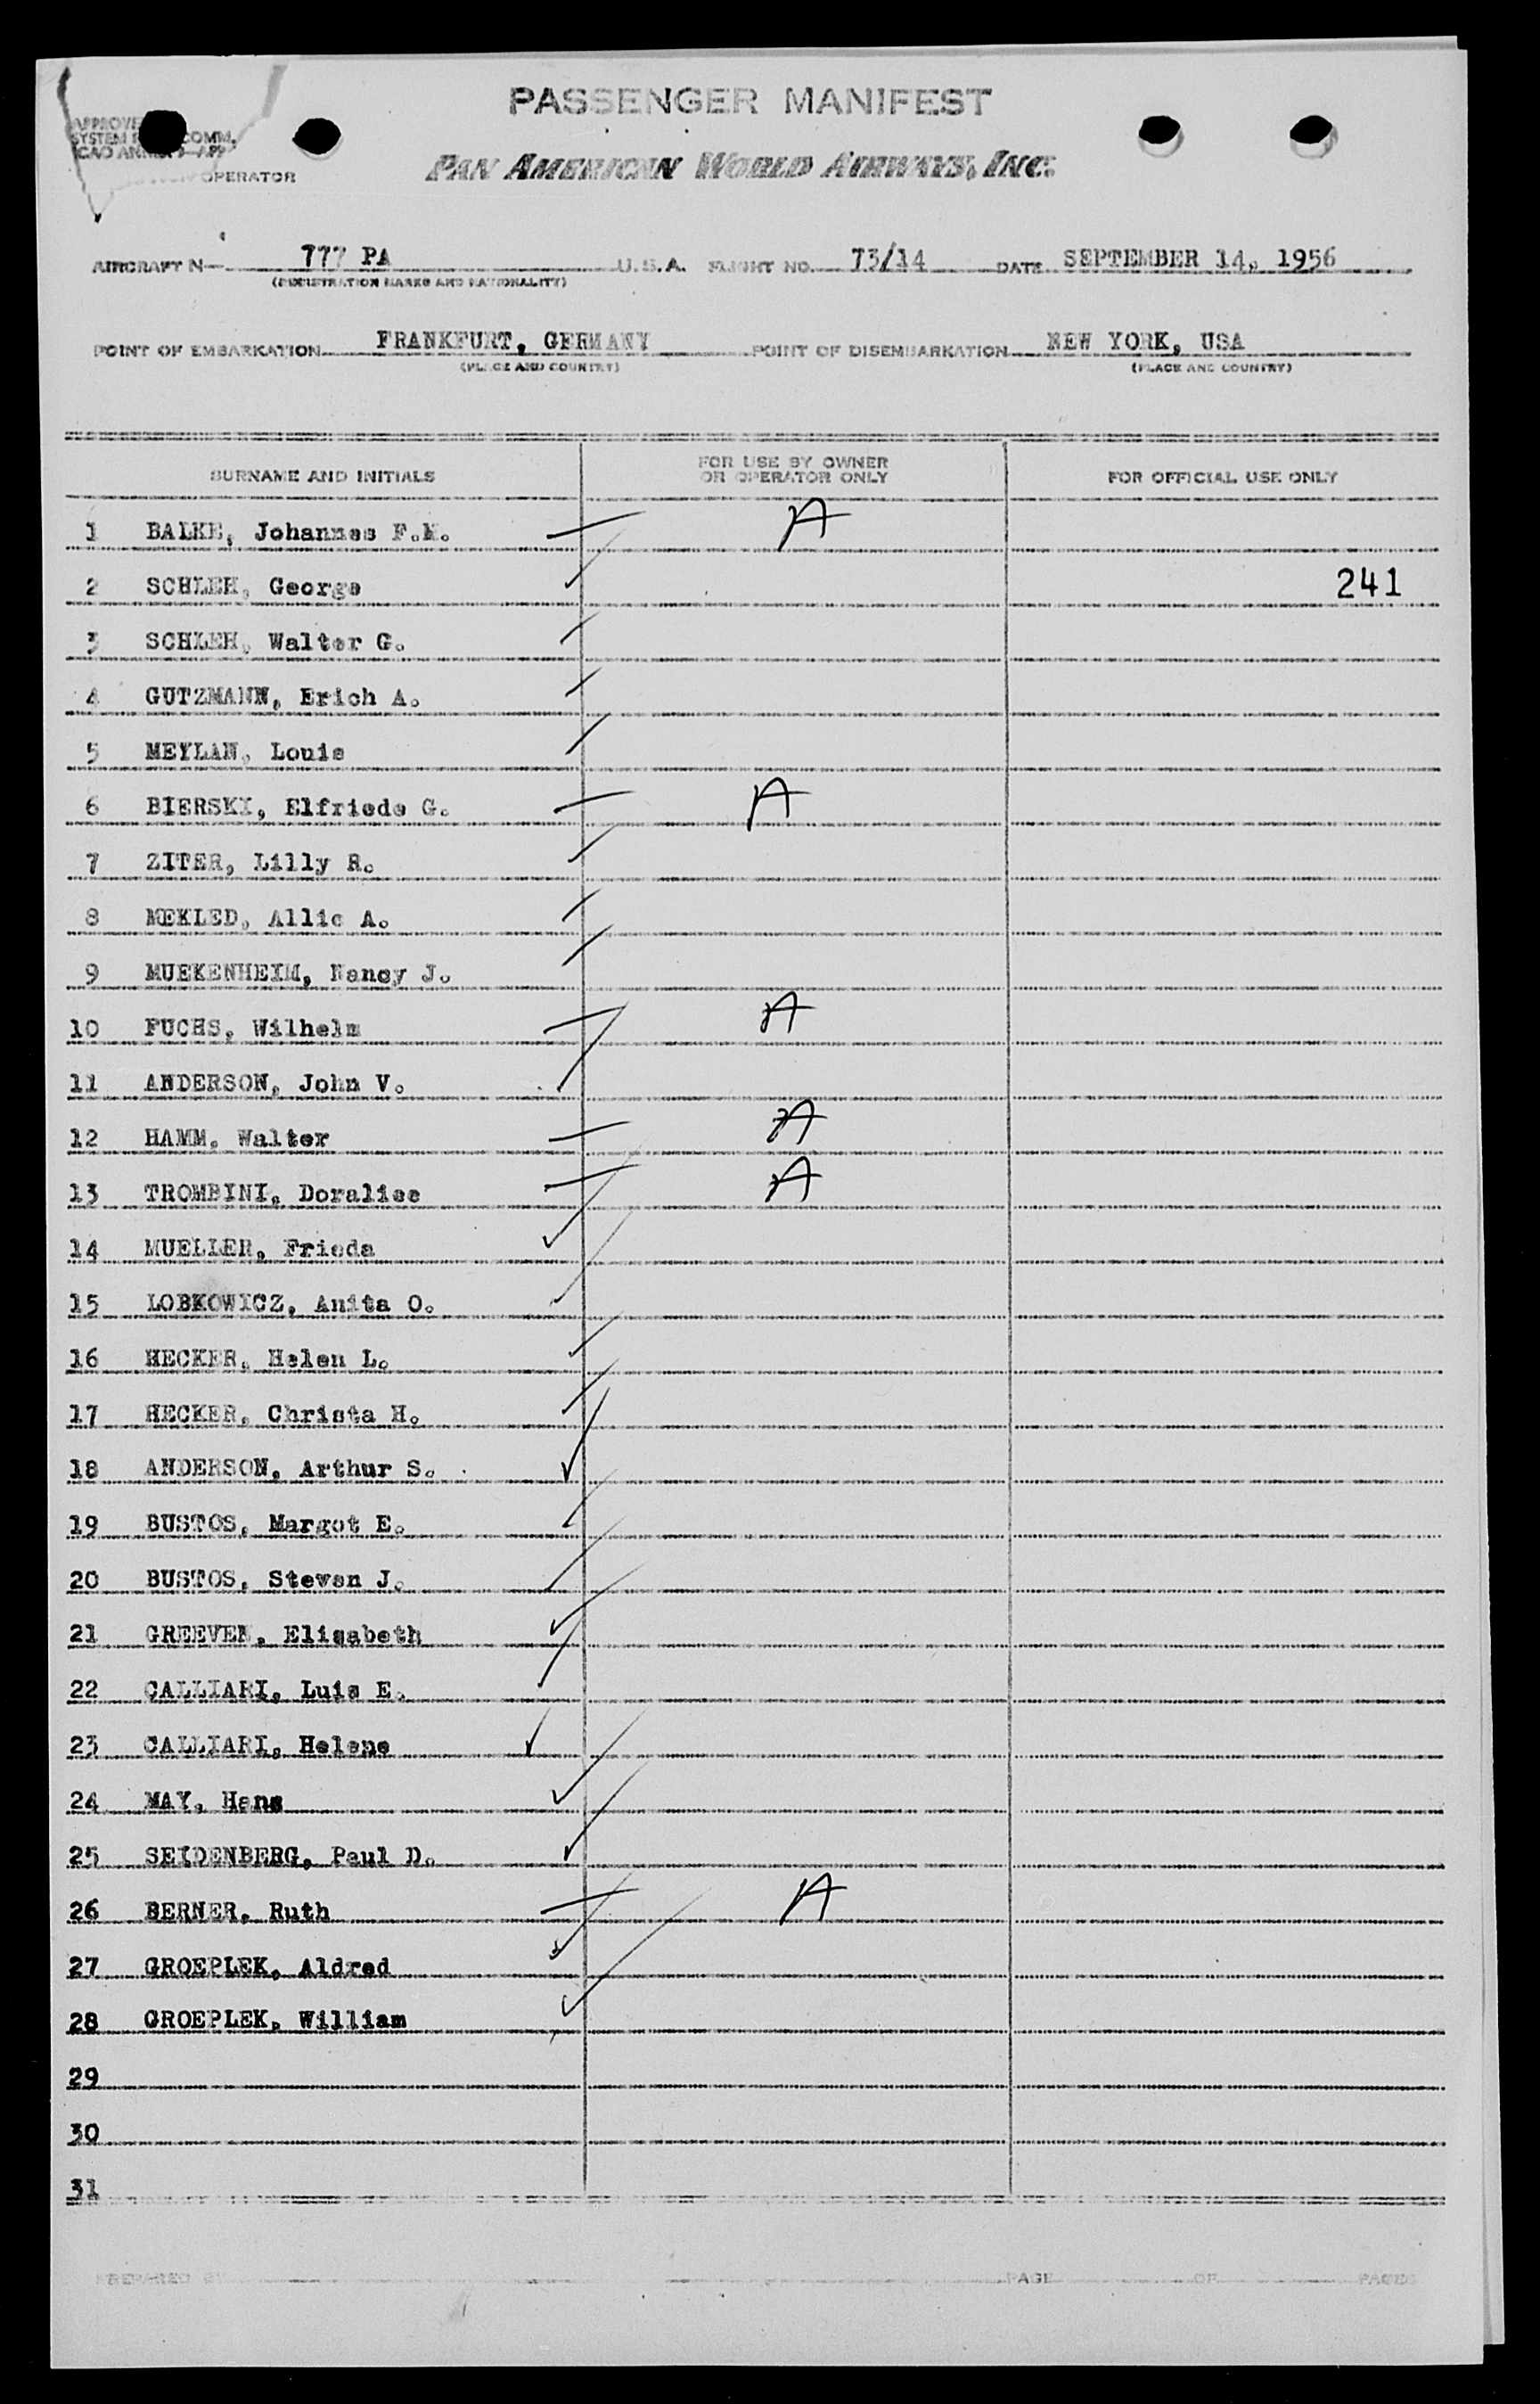 PASSENGER MANIFEST
SYSTEM COMM.
OPERATOR
PAN AMERICAN WORLD AIRWAYS, INC.
AIRCRAFT N 777 PA U.S.A. FLIGHT NO. 73/14 DATE SEPTEMBER 14, 1956
(REGISTRATION MARKS AND NATIONALITY)
POINT OF EMBARKATION FRANKFURT, GERMANY POINT OF DISEMBARKATION NEW YORK, USA
(PLACE AND COUNTRY) (PLACE AND COUNTRY)
SURNAME AND INITIALS FOR USE BY OWNER OR OPERATOR ONLY FOR OFFICIAL USE ONLY
1 BALKE, Johannes F.M. A
2 SCHLEH, George 241
3 SCHLEH, Walter G.
4 GUTZMANN, Erich A.
5 MEYLAN, Louis
6 BIERSKI, Elfriede G. A
7 ZITER, Lilly R.
8 MEKLED, Allie A.
9 MUEKENHEIM, Nancy J.
10 FUCHS, Wilhelm A
11 ANDERSON, John V.
12 HAMM, Walter A
13 TROMBINI, Doralise A
14 MUELLER, Frieda
15 LOBKOWICZ, Anita O.
16 HECKER, Helen L.
17 HECKER, Christa H.
18 ANDERSON, Arthur S.
19 BUSTOS, Margot E.
20 BUSTOS, Steven J.
21 GREEVEN, Elisabeth
22 CALLIARI, Luis E.
23 CALLIARI, Helene
24 MAY, Hans
25 SEIDENBERG, Paul D.
26 BERNER, Ruth A
27 GROEPLEK, Aldred
28 GROEPLEK, William
29
30
31
PREPARED BY PAGE OF PAGES